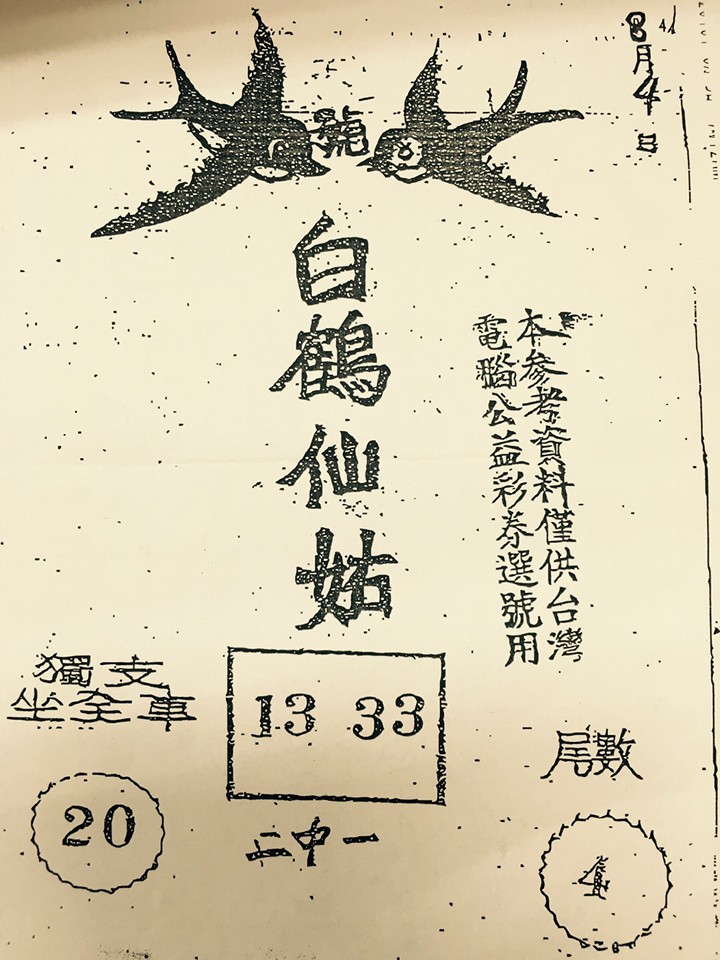 8月4日
號
白鶴仙姑
本參考資料僅供台灣
電腦公益彩券選號用
獨支
坐全車
20
13 33
二中一
尾數
4